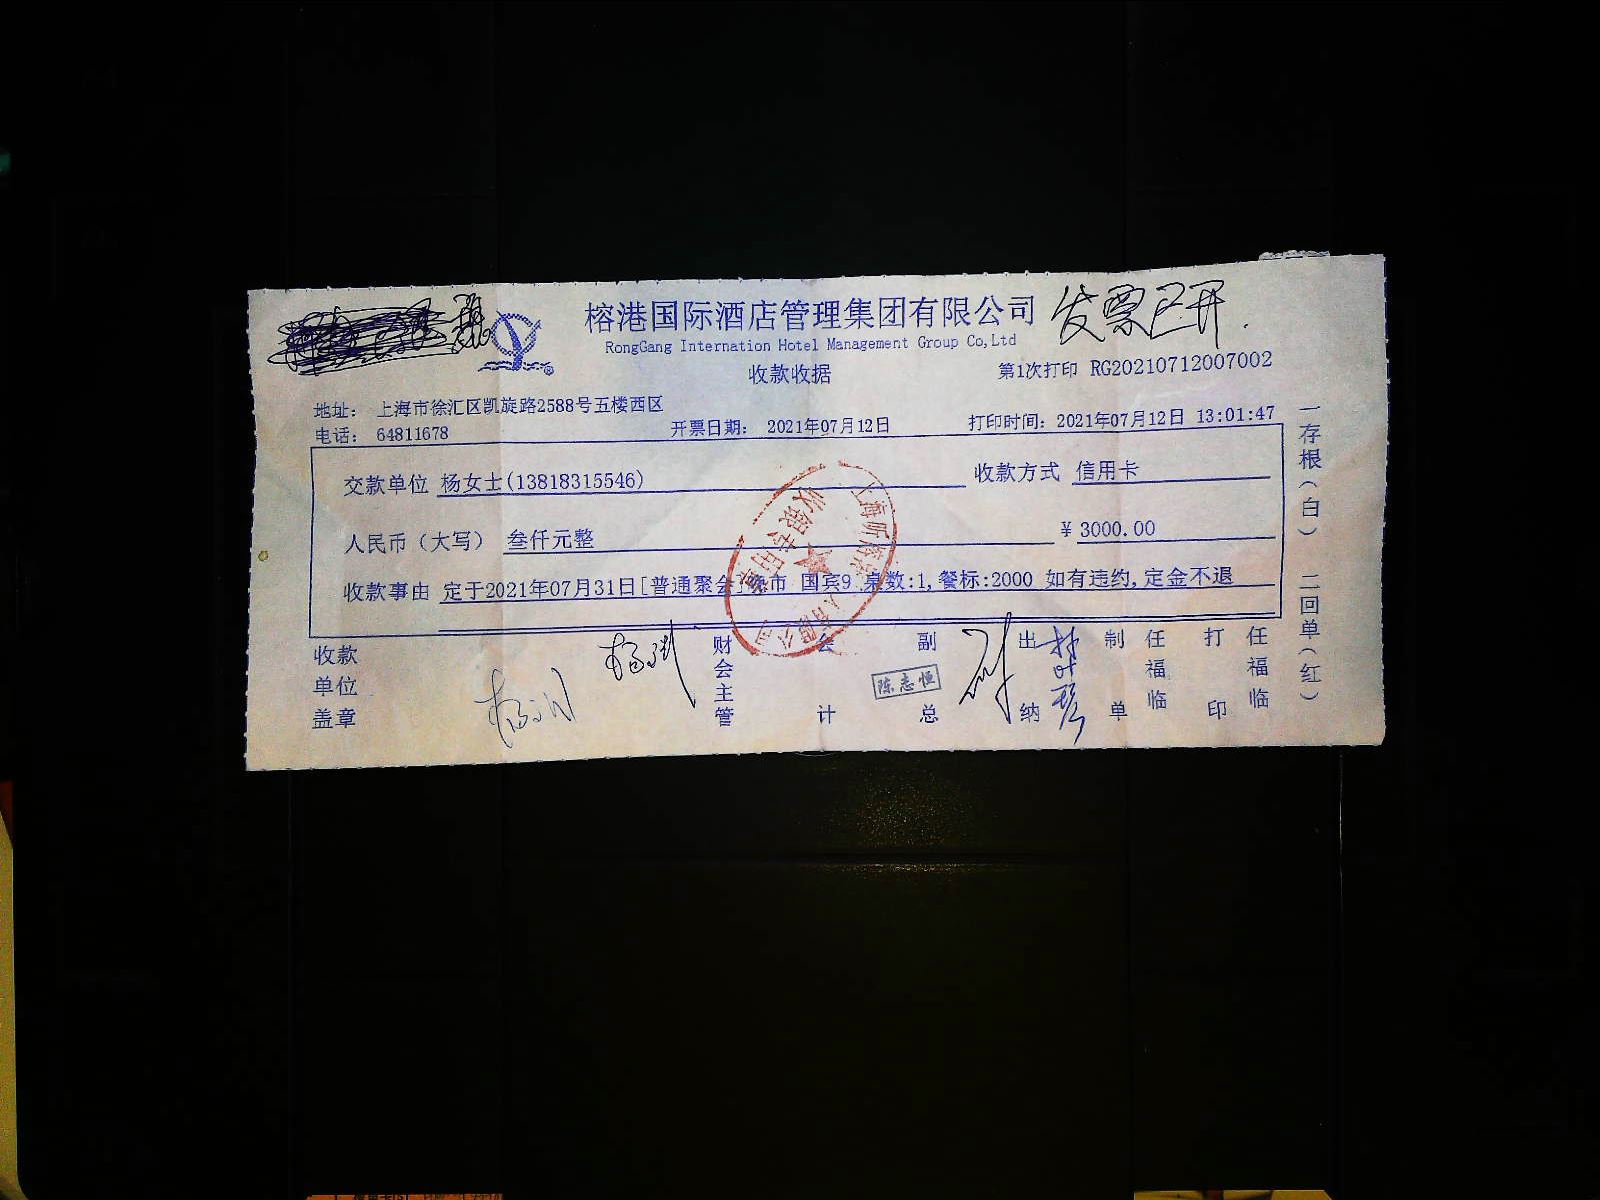 榕港国际酒店管理集团有限公司 发票已开.
RongGang Internation Hotel Management Group Co,Ltd
收款收据 第1次打印 RG20210712007002
地址： 上海市徐汇区凯旋路2588号五楼西区
电话： 64811678 开票日期： 2021年07月12日 打印时间：2021年07月12日 13:01:47
交款单位 杨女士(13818315546) 收款方式 信用卡
人民币（大写） 叁仟元整 ¥ 3000.00
收款事由 定于2021年07月31日[普通聚会] 市 国宾9 桌数:1,餐标:2000 如有违约,定金不退
收银专用章
收款单位盖章 财会主管 会计 副总 出纳 制单 任福临 打印 任福临
陈志恒
一存根（白） 二回单（红）